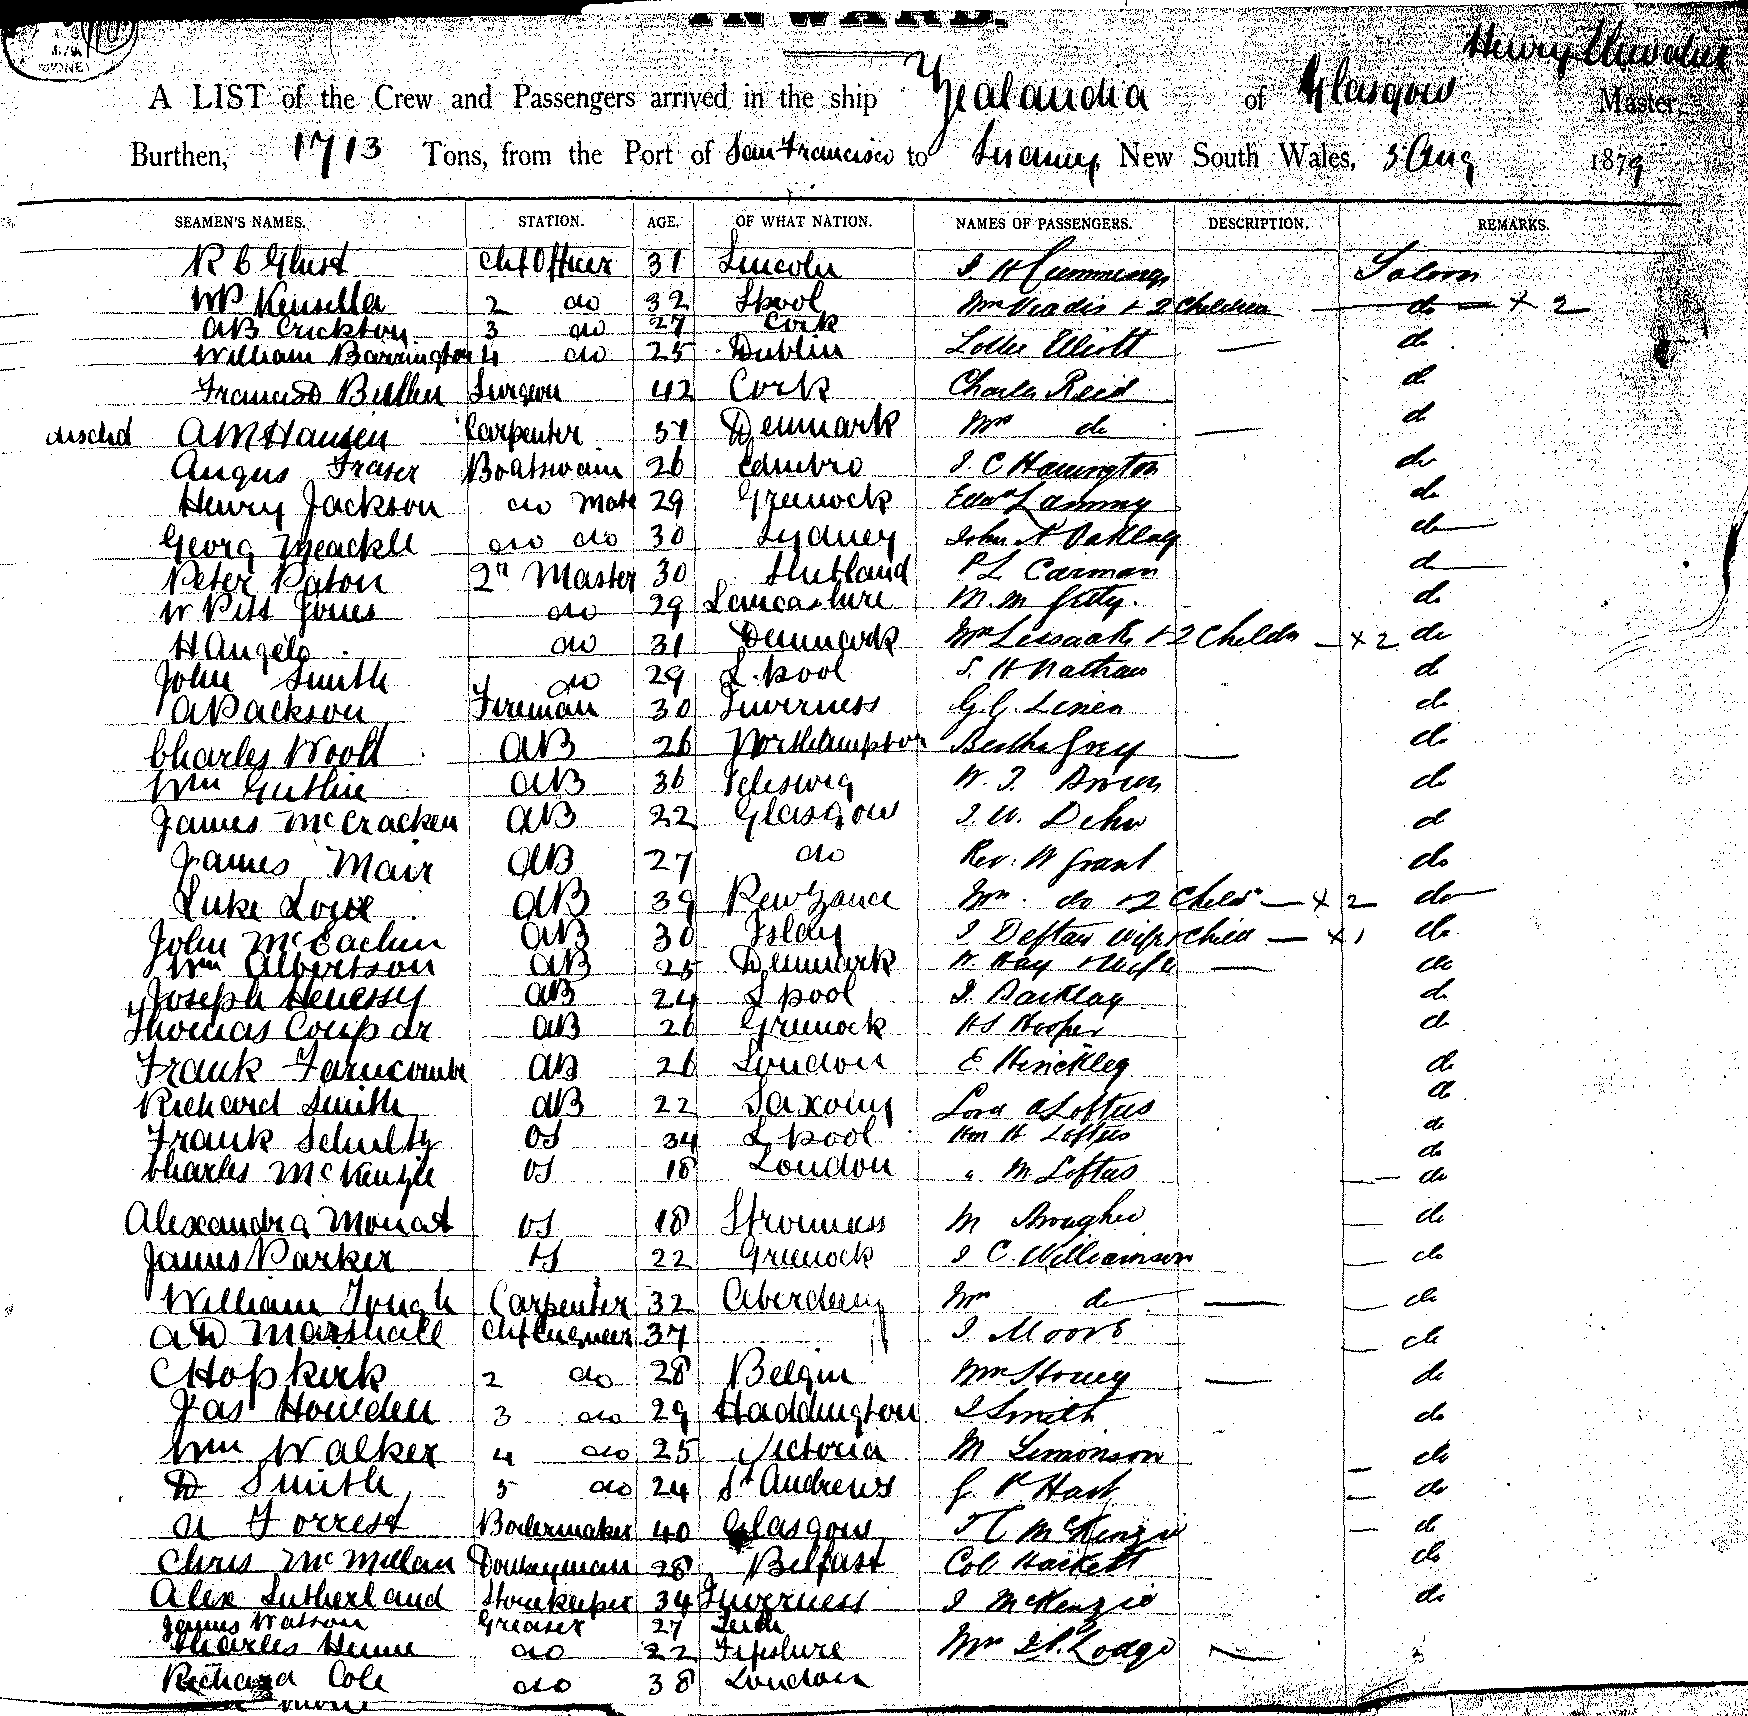 INWARD.
Henry Chevalier
A LIST of the Crew and Passengers arrived in the ship Zealandia of Glasgow Master,
Burthen, 1713 Tons, from the Port of San Francisco to Sydney, New South Wales, 5 Aug 1879
SEAMEN'S NAMES. STATION. AGE. OF WHAT NATION. NAMES OF PASSENGERS. DESCRIPTION. REMARKS.
R C Ghist Chf Officer 31 Lincoln J H Cummings Saloon
WP Kensella 2 do 32 Lpool Mrs + 2 Children do × 2
AB Erickson 3 do 27 Cork
William Barrington 4 do 25 Dublin Lollie Elliott — do
Francis Butler Surgeon 42 Cork Charles Reid do
dischd A M Hansen Carpenter 37 Denmark Mrs do — do
Angus Fraser Boatswain 26 Edinbro J. C Harrington do
Henry Jackson do Mate 29 Greenock Edwd Lammy do
Georg Meackle do do 30 Sydney John A Oakley do
Peter Paton 2r Master 30 Shetland P L Carman do
W Pitt Jones do 29 Lancashire M. M. Getty. do
H Angelo do 31 Denmark Mrs + 2 Childn — × 2 do
John Smith do 29 L.pool S. H Nathan do
A Backson Fireman 30 Inverness G. G. Linen do
Charles Woolt AB 26 Northhampton Bertha Grey — do
Wm Guthrie AB 36 Sleswig W. J. Brown do
James McCracken AB 22 Glasgow J. W. Dehn do
James Mair AB 27 do Rev. W Grant do
Luke Love AB 39 Penzance Mrs. do + 2 Childn — × 2 do
John McEachen AB 30 Islay J Deftan wife & child — × 1 do
Wm Albertson AB 25 Denmark W. Hay & wife — do
Joseph Henessy AB 24 Lpool J. Barklay do
Thomas Coupar AB 26 Greenock H S Hooper do
Frank Farncombe AB 26 London E Hinckley do
Richard Smith AB 22 Saxony Lord A Loftus do
Frank Schultz OS 34 L.pool Hon H Loftus do
do
Charles McKenzie OS 18 London " M Loftus do
Alexandra Mouat OS 18 Stromness M do
James Parker OS 22 Greenock J C. Williamson do
William Tough Carpenter 32 Aberdeen Mrs do — do
A D Marshall Chf Engineer 37 J. Moore do
C Hopkirk 2 do 28 Belgiu Mrs Storey — do
Jas Howden 3 do 29 Haddington J Smith do
Wm Walker 4 do 25 Victoria M Simonson do
D Smith 5 do 24 St Andrews J. P Hart do
A Forrest Boilermaker 40 Glasgow McKenzie do
Chris McMillan Donkeyman 28 Belfast Col Hackett do
Alex Sutherland Storekeeper 34 Inverness J McKenzie do
James Watson Greaser 27 Leith
Charles Hume do 22 Fifeshire Mrs Lodge —
Richard Cole do 38 London